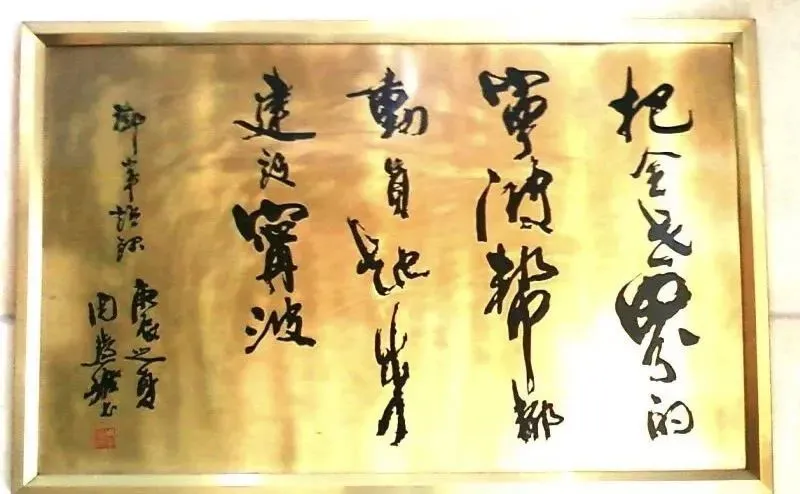 把全世界的
寧波幫都
動員起來
建設寧波
鄧小平語録
庚辰之夏
周